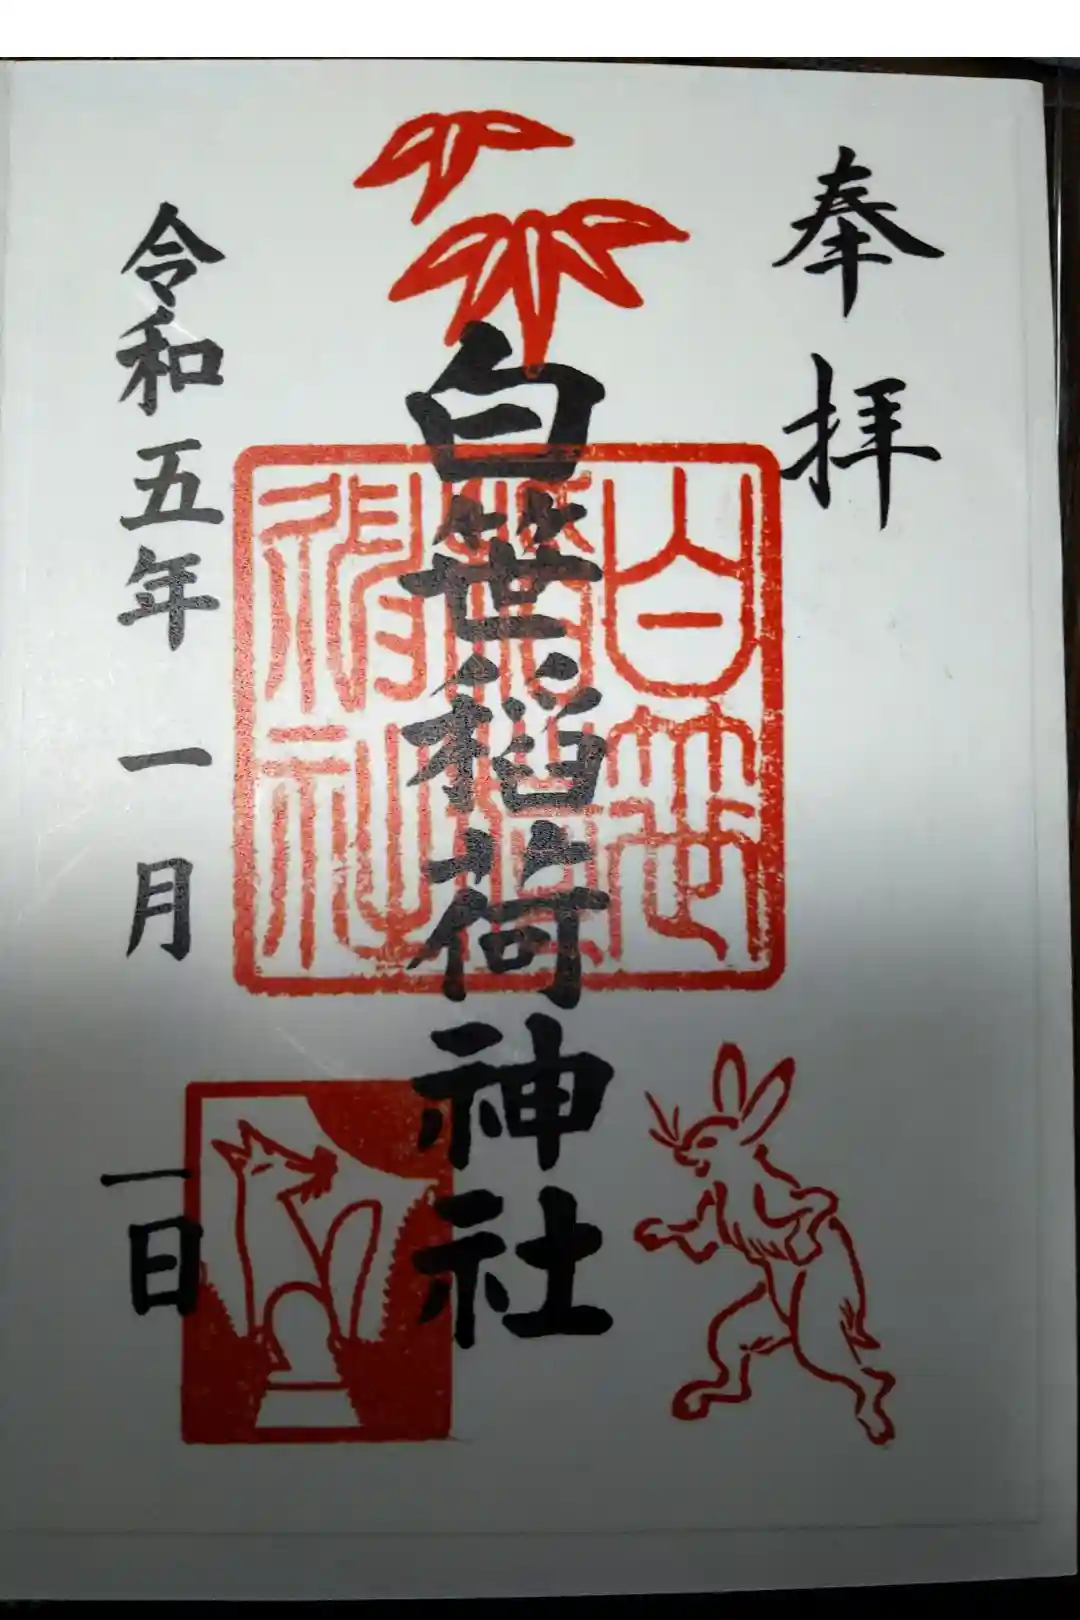 奉拝
白笹稲荷神社
白笹
稲荷
神社
令和五年一月一日